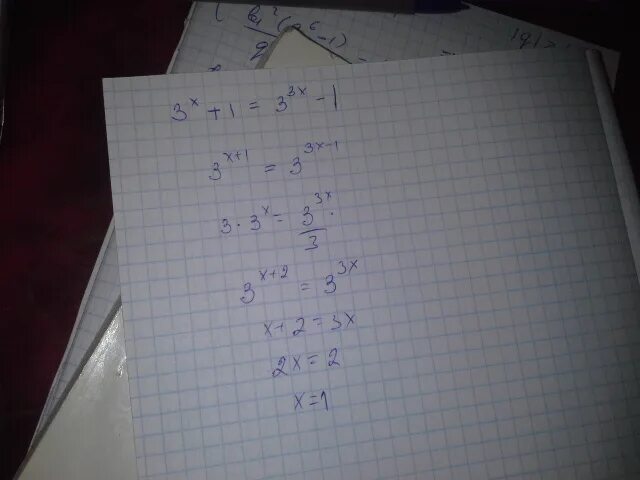 3^x + 1 = 3^3x - 1
3^x+1 = 3^3x-1
3 · 3^x = 3^3x / 3 ·
3^x+2 = 3^3x
x + 2 = 3x
2x = 2
x = 1